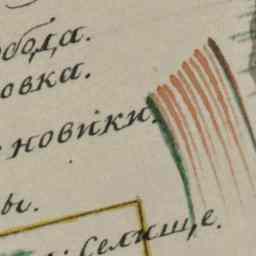 обода.
овка.
новики.
ы.
Селище.